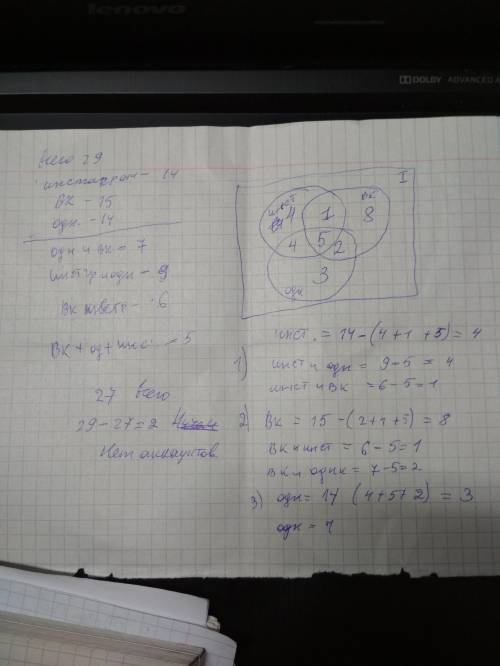 lenovo
DOLBY ADVANCED A
Всего 29
инстаграм - 14
ВК - 15
одн. - 14
одн и вк = 7
инстгр и одн - 9
ВК - 6
ВК + од + инс = 5
27 всего
29 - 27 = 2
Нет аккаунтов
I
инст
ВК
4 1 8
4 5 2
3
одн
инст. = 14 - (4 + 1 + 5) = 4
1) инст и одн = 9 - 5 = 4
инст и вк = 6 - 5 = 1
2) Вк = 15 - (2 + 1 + 5) = 8
Вк и инст = 6 - 5 = 1
вк и одн = 7 - 5 = 2
3) одн = 14 (4 + 5 + 2) = 3
одн =